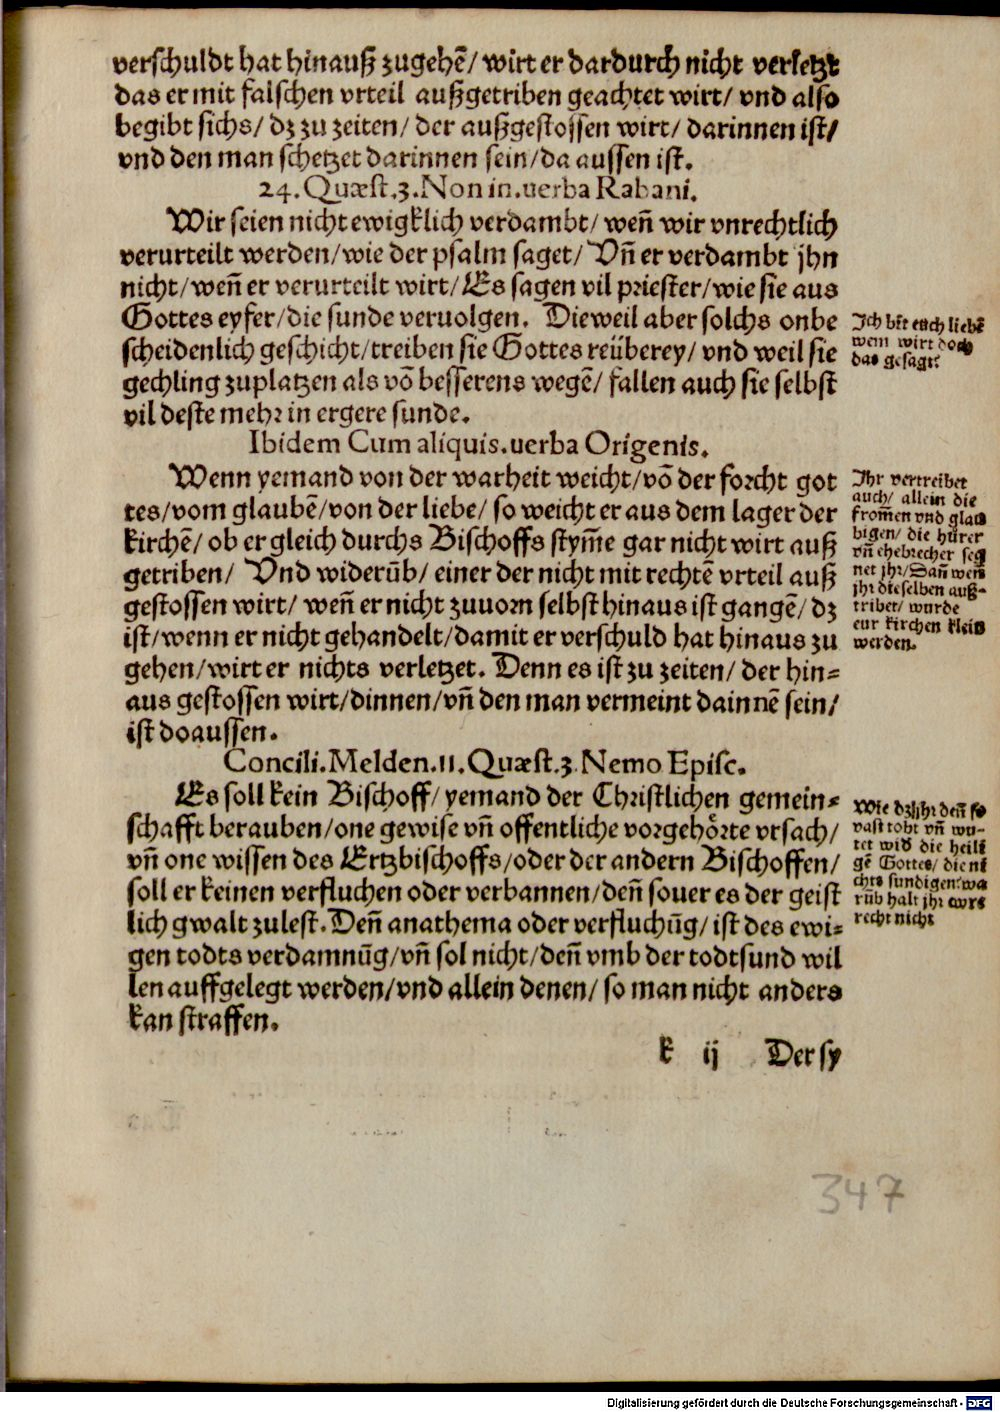 verschuldt hat hinauß zugehē/ wirt er dardurch nicht verletzt
das er mit falschen vrteil außgetriben geachtet wirt/ vnd also
begibt sichs/ dz zu zeiten/ der außgestossen wirt/ darinnen ist/
vnd den man schetzet darinnen sein/ da aussen ist.
24. Quæst. 3. Non in. uerba Rabani.
Wir seien nicht ewigklich verdambt/ weñ wir vnrechtlich
verurteilt werden/ wie der psalm saget/ Vñ er verdambt jhn
nicht/ weñ er verurteilt wirt/ Es sagen vil priester/ wie sie aus
Gottes eyfer/ die sunde veruolgen. Dieweil aber solchs onbe
scheidenlich geschicht/ treiben sie Gottes reüberey/ vnd weil sie
gechling zuplatzen als vō besserens wegē/ fallen auch sie selbst
vil deste mehr in ergere sunde.
Ich bit euch liebē
wem wirt doch
das gesagt?
Ibidem Cum aliquis. uerba Origenis.
Wenn yemand von der warheit weicht/ vō der forcht got
tes/ vom glaubē/ von der liebe/ so weicht er aus dem lager der
kirchē/ ob er gleich durchs Bischoffs stym̄e gar nicht wirt auß
getriben/ Vnd widerūb/ einer der nicht mit rechtē vrteil auß
gestossen wirt/ weñ er nicht zuuorn selbst hinaus ist gangē/ dz
ist/ wenn er nicht gehandelt/ damit er verschuld hat hinaus zu
gehen/ wirt er nichts verletzet. Denn es ist zu zeiten/ der hin=
aus gestossen wirt/ dinnen/ vñ den man vermeint dainnē sein/
ist doaussen.
Ihr vertreibet
auch/ allein die
from̄en vnd glau
bigen/ die hůrer
vñ ehebrecher seg
net jhr/ Dañ wen
jhr dieselben auß-
tribet/ wurde
eur kirchen klein
werden.
Concili. Melden. 11. Quæst. 3. Nemo Episc.
Es soll kein Bischoff/ yemand der Christlichen gemein=
schafft berauben/ one gewise vñ offentliche vorgehörte vrsach/
vñ one wissen des Ertzbischoffs/ oder der andern Bischoffen/
soll er keinen verfluchen oder verbannen/ deñ souer es der geist
lich gwalt zulest. Deñ anathema oder verfluchūg/ ist des ewi=
gen todts verdamnūg/ vñ sol nicht/ deñ vmb der todtsund wil
len auffgelegt werden/ vnd allein denen/ so man nicht anders
kan straffen.
Wie dz jhr deñ so
vast tobt vñ wu-
tet wid die heili
gē Gottes/ die ni
chts sundigen? wa
rūb halt jhr ewre
recht nicht
k ij Der sy
347
Digitalisierung gefördert durch die Deutsche Forschungsgemeinschaft - DFG